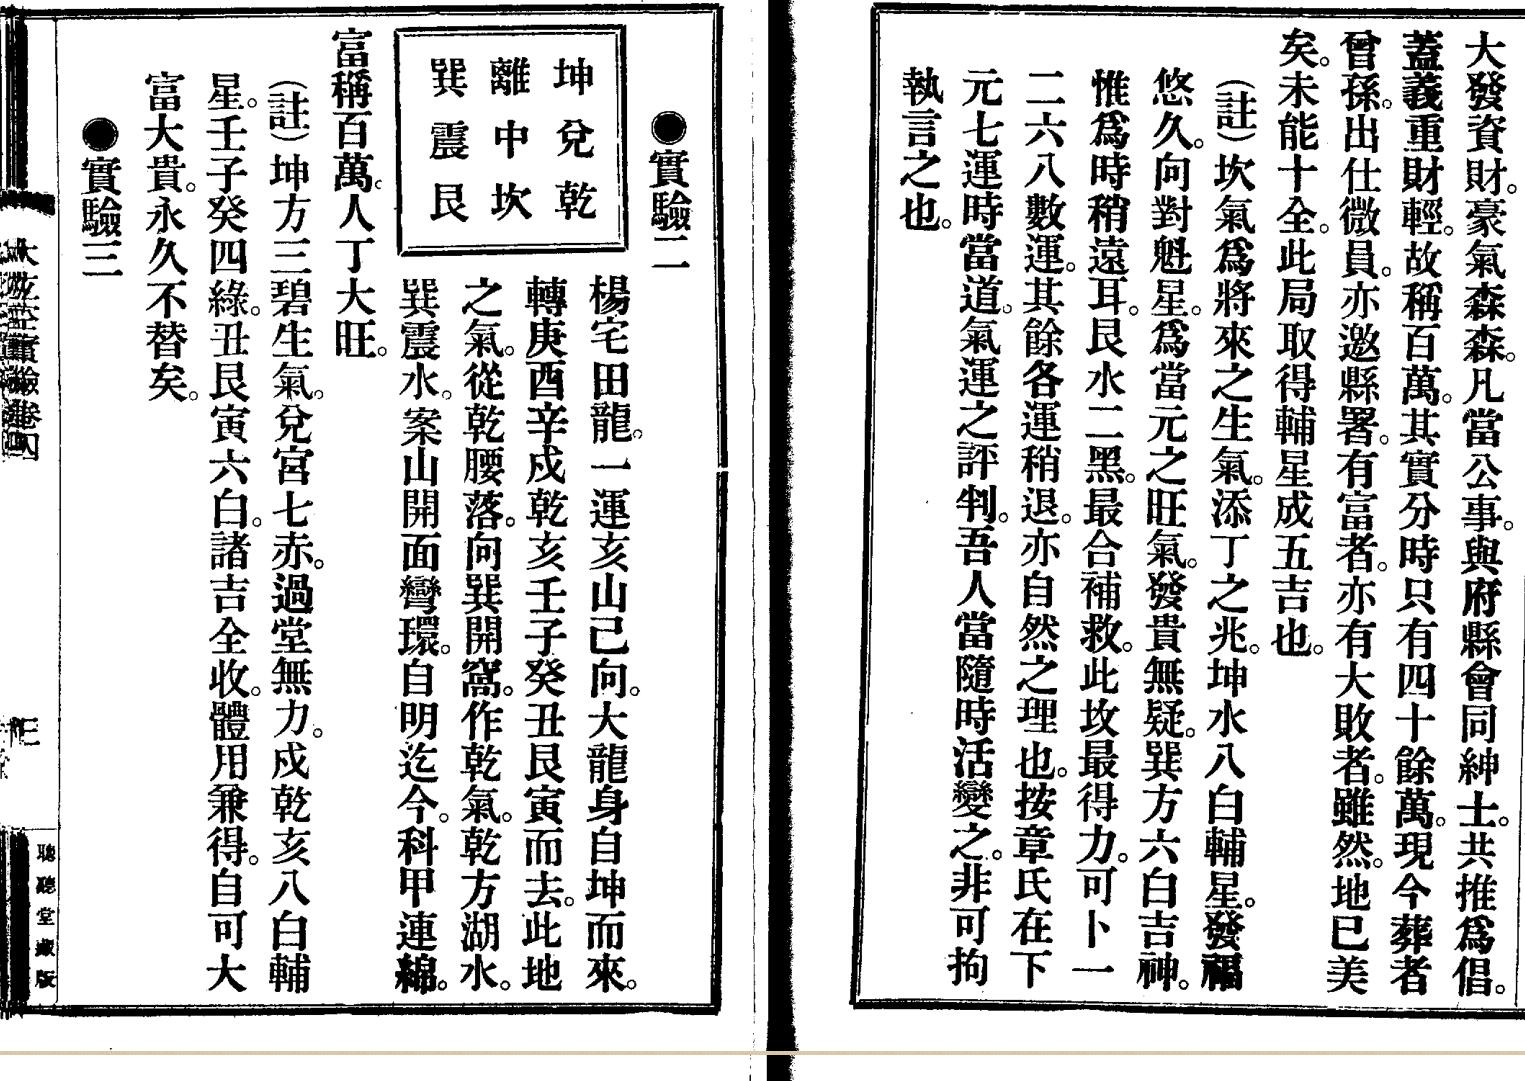 大發資財。豪氣森森。凡當公事。與府縣會同紳士。共推爲倡。
蓋義重財輕。故稱百萬。其實分時只有四十餘萬。現今葬者
曾孫。出仕微員。亦邀縣署。有富者。亦有大敗者。雖然。地已美
矣。未能十全。此局取得輔星成五吉也。
（註）坎氣爲將來之生氣。添丁之兆。坤水八白輔星。發福
悠久。向對魁星。爲當元之旺氣。發貴無疑。巽方六白吉神。
惟爲時稍遠耳。艮水二黑。最合補救。此坟最得力。可卜一
二六八數運。其餘各運稍退。亦自然之理也。按章氏在下
元七運時當道。氣運之評判。吾人當隨時活變之。非可拘
執言之也。
●實驗二
坤兌乾
離中坎
巽震艮
楊宅田龍。一運亥山己向。大龍身自坤而來。
轉庚酉辛戍乾亥壬子癸丑艮寅而去。此地
之氣。從乾腰落。向巽開窩。作乾氣。乾方湖水。
巽震水。案山開面彎環。自明迄今。科甲連綿。
富稱百萬。人丁大旺。
（註）坤方三碧生氣。兌宮七赤。過堂無力。戍乾亥八白輔
星。壬子癸四綠。丑艮寅六白。諸吉全收。體用兼得。自可大
富大貴。永久不替矣。
●實驗三
實驗卷四
三
聽聽堂藏版